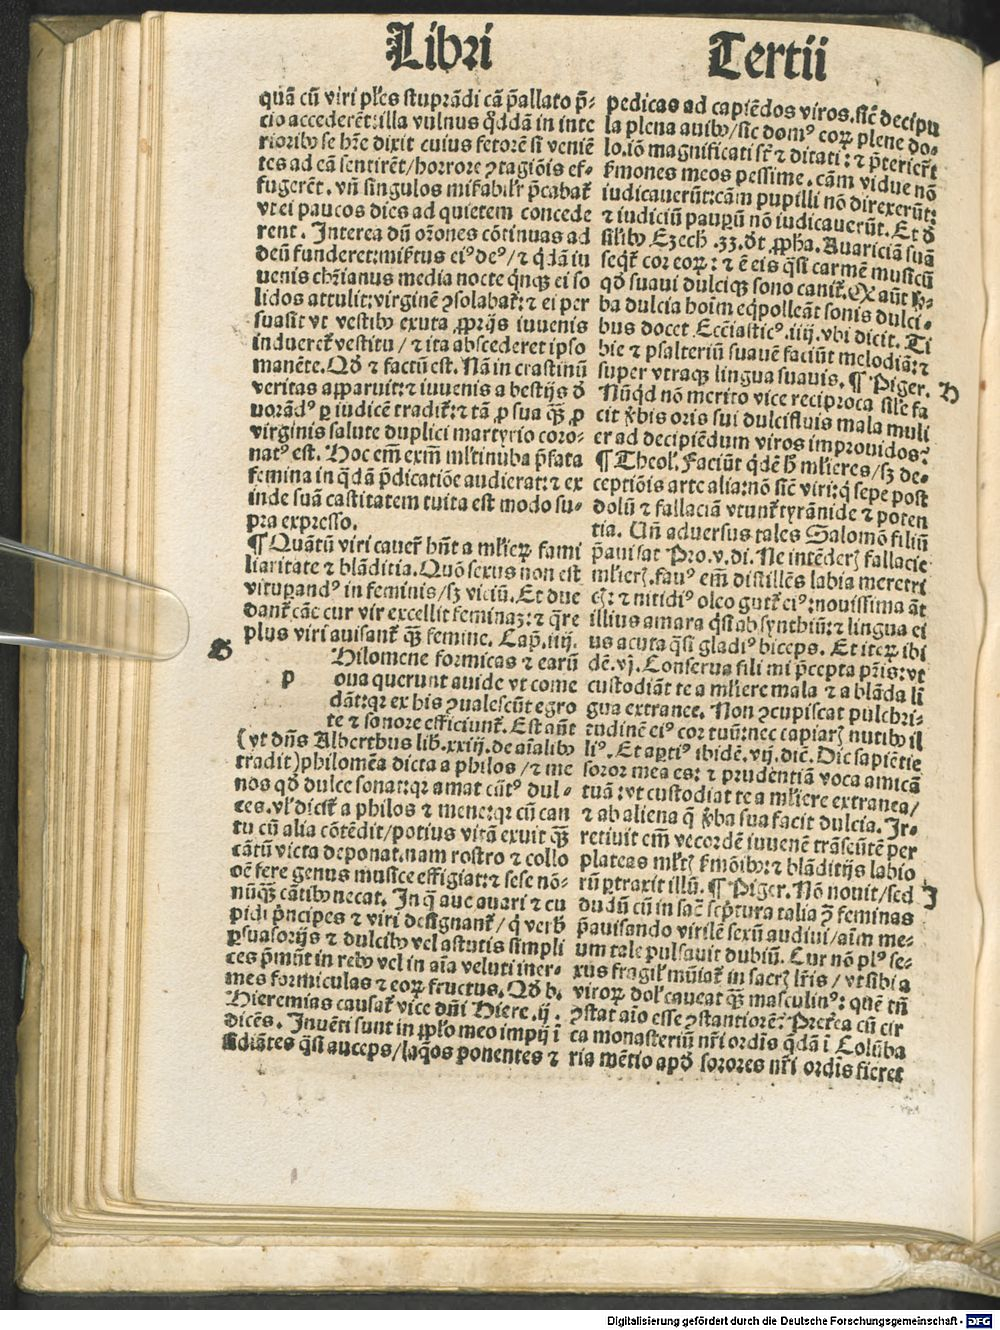 Libri Tertii
quā cū viri pl̄es stuprādi cā p̄allato p̄-
cio accederēt:illa vulnus qddā in inte
riorib⁹ se hr̄e dixit cuius fetorē si veniē
tes ad eā sentirēt/horrore ꝯtagiōis ef-
fugerēt. vñ singulos mirabilr̄ p̄cabat̄
vt ei paucos dies ad quietem concede
rent. Interea dū or̄ones cōtinuas ad
deū funderet:mir̄tus ei⁹ de⁹/⁊ qdā iu
uenis chr̄ianus media nocte qnq̄ ei so
lidos attulit:virginē ꝯsolabat̄:⁊ ei per
suasit vt vestib⁹ exuta ꝓprijs iuuenis
induerет̄ vestitu/⁊ ita abscederet ipso
manēte. Qd ⁊ factū est. Nā in crastinū
veritas apparuit:⁊ iuuenis a bestijs d
uorād⁹ ꝑ iudicē tradit̄:⁊ tā ꝓ sua q̄ꝫ ꝓ
virginis salute duplici martyrio coro-
nat⁹ est. Hoc em̄ exm̄ ml̄tinuba p̄fata
femina in qdā p̄dicatiōe audierat:⁊ ex
inde suā castitatem tuita est modo su-
pra expresso.
¶ Quātū viri cauer̄ hn̄t a ml̄ieꝝ fami
liaritate ⁊ blāditia. Quō sexus non est
vituperand⁹ in feminis/sꝫ viciū. Et due
dant̄ cāe cur vir excellit feminaꝫ:⁊ qre
plus viri auisant̄ q̄ꝫ femine. Cap. iiij.
G
p Hilomene formicas ⁊ earū
oua querunt auide vt come
dāt:qr ex his ꝯualescūt egro
te ⁊ sonore efficiunt̄. Est aūt
(vt dn̄s Alberthus lib. xxiij. de aīalib⁹
tradit)philomēa dicta a philos/⁊ me
nos qd dulce sonat:qr amat cāt⁹ dul-
ces. vl̄ dicit̄ a philos ⁊ mene:qr cū can
tu cū alia cōtēdit/potius vitā exuit q̄ꝫ
cātū victa deponat. nam rostro ⁊ collo
oē fere genus musice effigiat:⁊ sese nō-
nūq̄ꝫ cātib⁹ necat. In q̄ aue auari ⁊ cu
pidi p̄ncipes ⁊ viri designant̄/q̄ verb
ꝑsuasorijs ⁊ dulcib⁹ vel astutis simpli
ces p̄mūt in reb⁹ vel in aīa veluti iner-
mes formiculas ⁊ eoꝝ fructus. Qd b.
Hieremias causat̄ vice dn̄i Hiere. ij.
dicēs. Inuēti sunt in ꝓplo meo impij ī
sidiātes q̄si auceps/laq̄os ponentes ⁊
pedicas ad capiēdos viros. sic̄ decipu
la plena auib⁹/sic dom⁹ eoꝝ plene do-
lo. iō magnificati st̄ ⁊ ditati:⁊ p̄terier̄t
s̄mones meos pessime. cām vidue nō
iudicauerūt:cām pupilli nō direxerūt:
⁊ iudiciū pauꝑū nō iudicauerūt. Et d
silib⁹ Ezech. 33. dt ꝓpha. Auariciā suā
seqt̄ cor eoꝝ:⁊ ē eis q̄si carmē musicū
qd suaui dulciq̄ꝫ sono canit̄. Ex aūt v̄-
ba dulcia hoīm eq̄polleāt sonis dulci-
bus docet Eccl̄iastic⁹. iiij. vbi dicit. Ti
bie ⁊ psalteriū suaue faciūt melodiā:⁊
super vtraq̄ꝫ lingua suauis. ¶ Piger. H
Nūqd nō merito vice reciproca sile fa
cit v̄bis oris sui dulcifluis mala muli
er ad decipiēdum viros improuidos?
¶ Theol̄. Faciūt qdē h̄ ml̄ieres/sꝫ de-
ceptiōis arte alia:nō sic̄ viri:q̄ sepe post
dolū ⁊ fallaciā vtunt̄ tyrānide ⁊ poten
tia. Uñ aduersus tales Salomō filiū
p̄auisat Pro. v. di. Ne intēderꝫ fallacie
ml̄ierꝫ. fau⁹ em̄ distillēs labia meretri
cꝫ:⁊ nitidi⁹ oleo gutt̄ ei⁹:nouissima āt
illius amara q̄si absynthiū:⁊ lingua ei
us acuta q̄si gladi⁹ biceps. Et iteꝝ ibi
dē. vj. Conserua fili mi p̄cepta pr̄is:vt
custodiāt te a ml̄iere mala ⁊ a blāda lī
gua extranee. Non ꝯcupiscat pulchri-
tudinē ei⁹ cor tuū:nec capiarꝫ nutib⁹ il
li⁹. Et aꝑti⁹ ibidē. vij. dic̄. Dic sapiētie
soror mea es:⁊ prudentiā voca amicā
tuā:vt custodiat te a ml̄iere extranea/
⁊ ab aliena q̄ v̄ba sua facit dulcia. Ir-
retiuit em̄ vecordē iuuenē trāseūtē per
plateas ml̄tꝫ s̄mōib⁹:⁊ blāditijs labio
rū ꝑtraxit illū. ¶ Piger. Nō nouit/sed J
dudū cū in sac̄ scp̄tura talia ꝯ̄ feminas
p̄auisando virilē sexū audiui/aīm me-
um tale pulsauit dubiū. Cur nō pl⁹ se-
xus fragil̄ muniat̄ in sacrꝫ lr̄is/vt sibi a
viroꝝ dol̄ caueat q̄ꝫ masculin⁹:quē tn̄
ꝯstat aio esse ꝯstantiorē? Pret̄ea cū cir
ca monasteriū nr̄i ordis qdā ī Colūba
ria mētio apd sorores nr̄i ordīs fieret
Digitalisierung gefördert durch die Deutsche Forschungsgemeinschaft - DFG